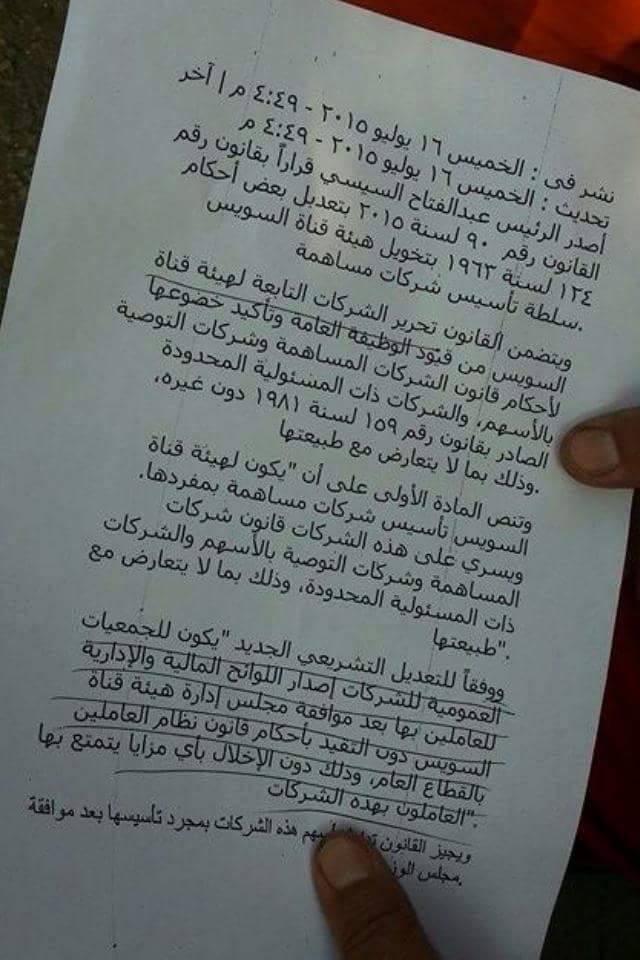 نشر فى : الخميس ١٦ يوليو ٢٠١٥ - ٤:٤٩ م | آخر
تحديث : الخميس ١٦ يوليو ٢٠١٥ - ٤:٤٩ م
أصدر الرئيس عبدالفتاح السيسي قراراً بقانون رقم
القانون رقم ٩٠ لسنة ٢٠١٥ بتعديل بعض أحكام
١٢٤ لسنة ١٩٦٣ بتخويل هيئة قناة السويس
.سلطة تأسيس شركات مساهمة
ويتضمن القانون تحرير الشركات التابعة لهيئة قناة
السويس من قيود الوظيفة العامة وتأكيد خضوعها
لأحكام قانون الشركات المساهمة وشركات التوصية
بالأسهم، والشركات ذات المسئولية المحدودة
الصادر بقانون رقم ١٥٩ لسنة ١٩٨١ دون غيره،
.وذلك بما لا يتعارض مع طبيعتها
وتنص المادة الأولى على أن "يكون لهيئة قناة
السويس تأسيس شركات مساهمة بمفردها.
ويسري على هذه الشركات قانون شركات
المساهمة وشركات التوصية بالأسهم والشركات
ذات المسئولية المحدودة، وذلك بما لا يتعارض مع
."طبيعتها
ووفقاً للتعديل التشريعي الجديد "يكون للجمعيات
العمومية للشركات إصدار اللوائح المالية والإدارية
للعاملين بها بعد موافقة مجلس إدارة هيئة قناة
السويس دون التقيد بأحكام قانون نظام العاملين
بالقطاع العام، وذلك دون الإخلال بأي مزايا يتمتع بها
."العاملون بهذه الشركات
ويجيز القانون أسهم هذه الشركات بمجرد تأسيسها بعد موافقة
.مجلس